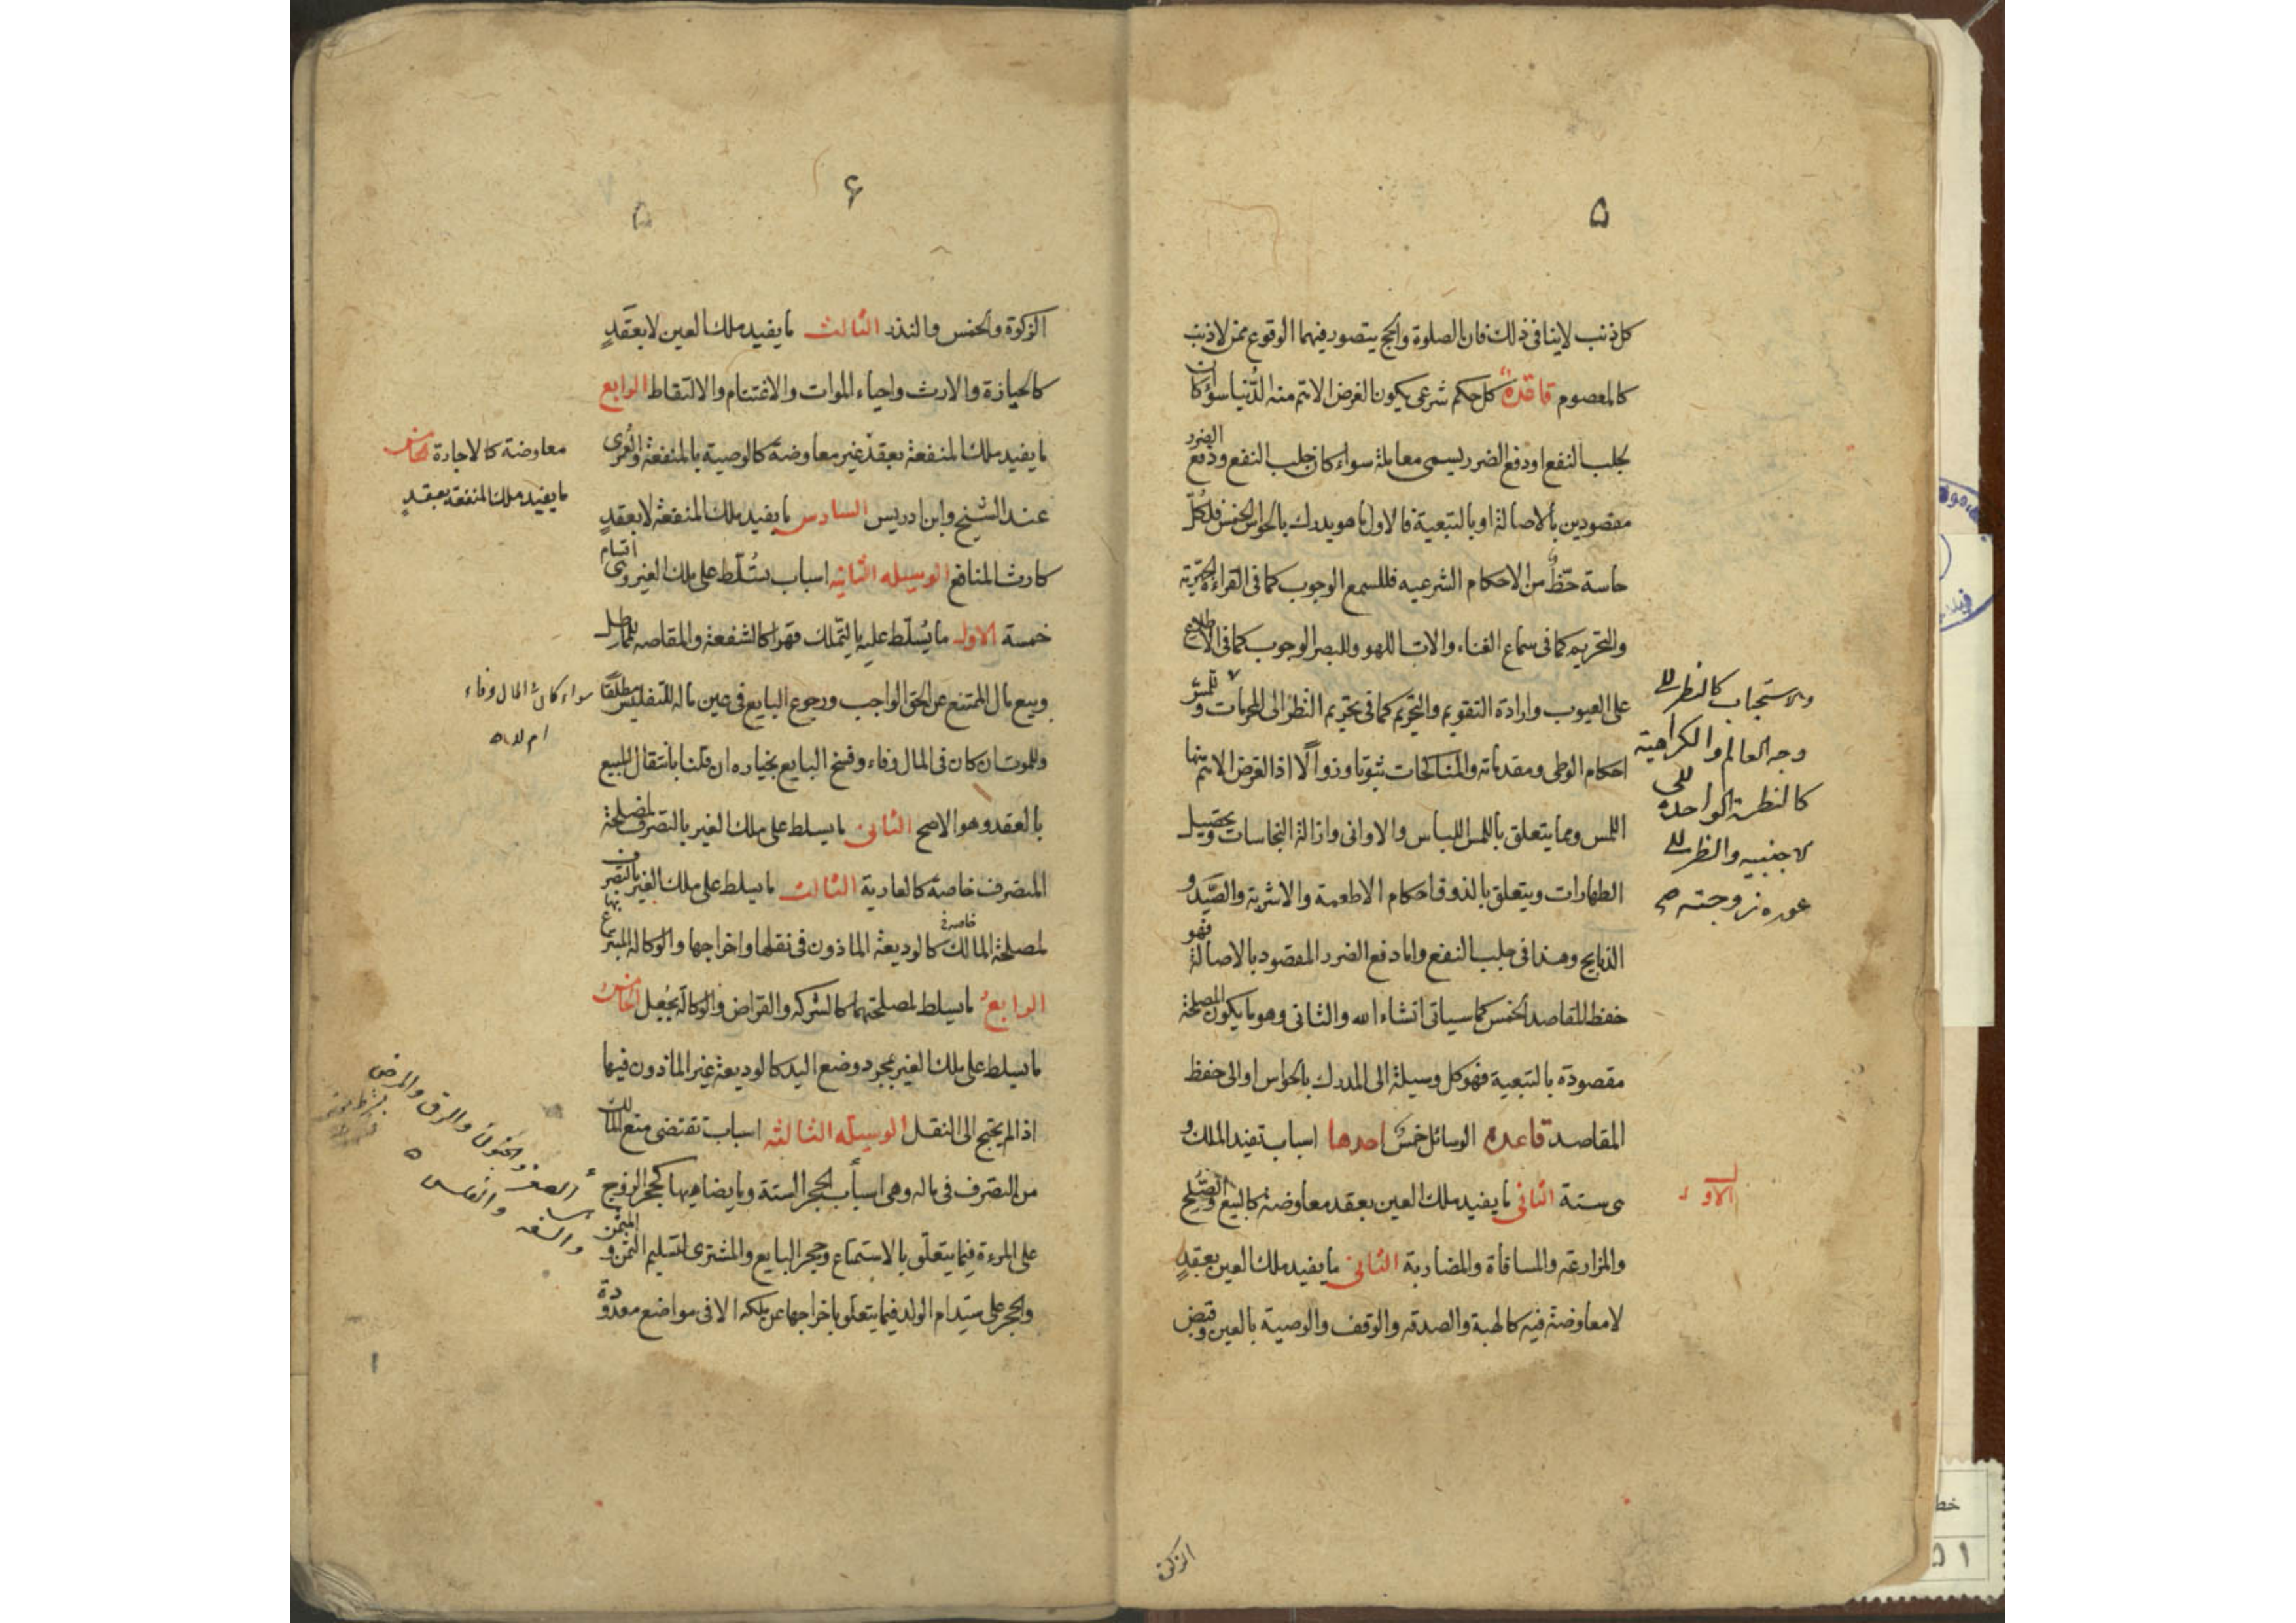 ۵
كل ذنب لا ينافى ذلك فان الصلوة والحج يتصور فيهما الوقوع ممن لا ذنب
كالمعصوم قاعدة كل حكم شرعى يكون الغرض الاتم منه الدنيا سواء كان
لجلب النفع او دفع الضرر يسمى معاملة سواء كان جلب النفع ودفع الضرر
مقصودين بالاصالة او بالتبعية فالاول ما هو يدرك بالحواس الخمس فلكل
حاسة حظ من الاحكام الشرعيه فللسمع الوجوب كما فى القراءة الجهرية
والتحريم كما فى سماع الغناء والات اللهو وللبصر الوجوب كما فى الاطلاع
على العيوب وارادة التقويم والتحريم كما فى تحريم النظر الى المحرمات وللمس
احكام الوطى ومقدماته والمناكحات ثبوتا وزوالا اذ الغرض الاتم منها
اللمس ومما يتعلق باللمس اللباس والاوانى وازالة النجاسات وتحصيل
الطهارات ويتعلق بالذوق احكام الاطعمة والاشربة والصيد و
الذبايح وهذا فى جلب النفع واما دفع الضرر المقصود بالاصالة فهو
حفظ المقاصد الخمس كما سياتى انشاء الله والثانى وهو ما يكون المصلحة
مقصودة بالتبعية فهو كل وسيلة الى المدرك بالحواس او الى حفظ
المقاصد قاعدة الوسائل خمس احدها اسباب تفيد الملك و
هى ستة الثانى ما يفيد ملك العين بعقد معاوضة كالبيع والصلح
والمزارعة والمساقاة والمضاربة الثانى ما يفيد ملك العين بعقد
لا معاوضة فيه كالهبة والصدقه والوقف والوصية بالعين وقبض
والاستحباب كالنظر الى
وجه العالم والكراهية
كالنظرة الواحدة الى
الاجنبيه والنظر الى
عورة زوجته
الاول
الزكوة
۶
۵
الزكوة والخمس والنذر الثالث ما يفيد ملك العين لا بعقد
كالحيازة والارث واحياء الموات والاغتنام والالتقاط الرابع
ما يفيد ملك المنفعة بعقد غير معاوضة كالوصية بالمنفعة والعمرى
عند الشيخ وابن ادريس السادس ما يفيد ملك المنفعة لا بعقد
كارث المنافع الوسيله الثانيه اسباب تسلط على ملك الغير وهى اقسام
خمسة الاول ما يسلط عليه بالتملك قهرا كالشفعة والمقاصه للمماطل
وبيع مال الممتنع عن الحق الواجب ورجوع البايع فى عين ماله للتفليس مطلقا
وللموت ان كان فى المال وفاء وفسخ البايع بخياره ان قلنا بانتقال المبيع
بالعقد وهو الاصح الثانى ما يسلط على ملك الغير بالتصرف لمصلحة
المتصرف خاصة كالعارية الثالث ما يسلط على ملك الغير بالتصرف
لمصلحة المالك خاصة كالوديعة الماذون فى نقلها واخراجها والوكالة المتبرع بها
الرابع ما يسلط لمصلحتهما كالشركه والقراض والوكالة بجعل الخامس
ما يسلط على ملك الغير بمجرد وضع اليد كالوديعة غير الماذون فيها
اذا لم يحتج الى النقل الوسيله الثالثه اسباب تقتضى منع المالك
من التصرف فى ماله وهى اسباب الحجر الستة وما يضاهيها كحجر الزوج
على المرءة فيما يتعلق بالاستمتاع وحجر البايع والمشترى لتسليم الثمن والمثمن
والحجر على سيد ام الولد فيما يتعلق باخراجها عن ملكه الا فى مواضع معدودة
معاوضة كالاجارة الخامس
ما يفيد ملك المنفعة بعقد
سواء كان المال وفاء
ام لا
الصغر والجنون والرق والمرض
والسفه والفلس
خط
۵۱